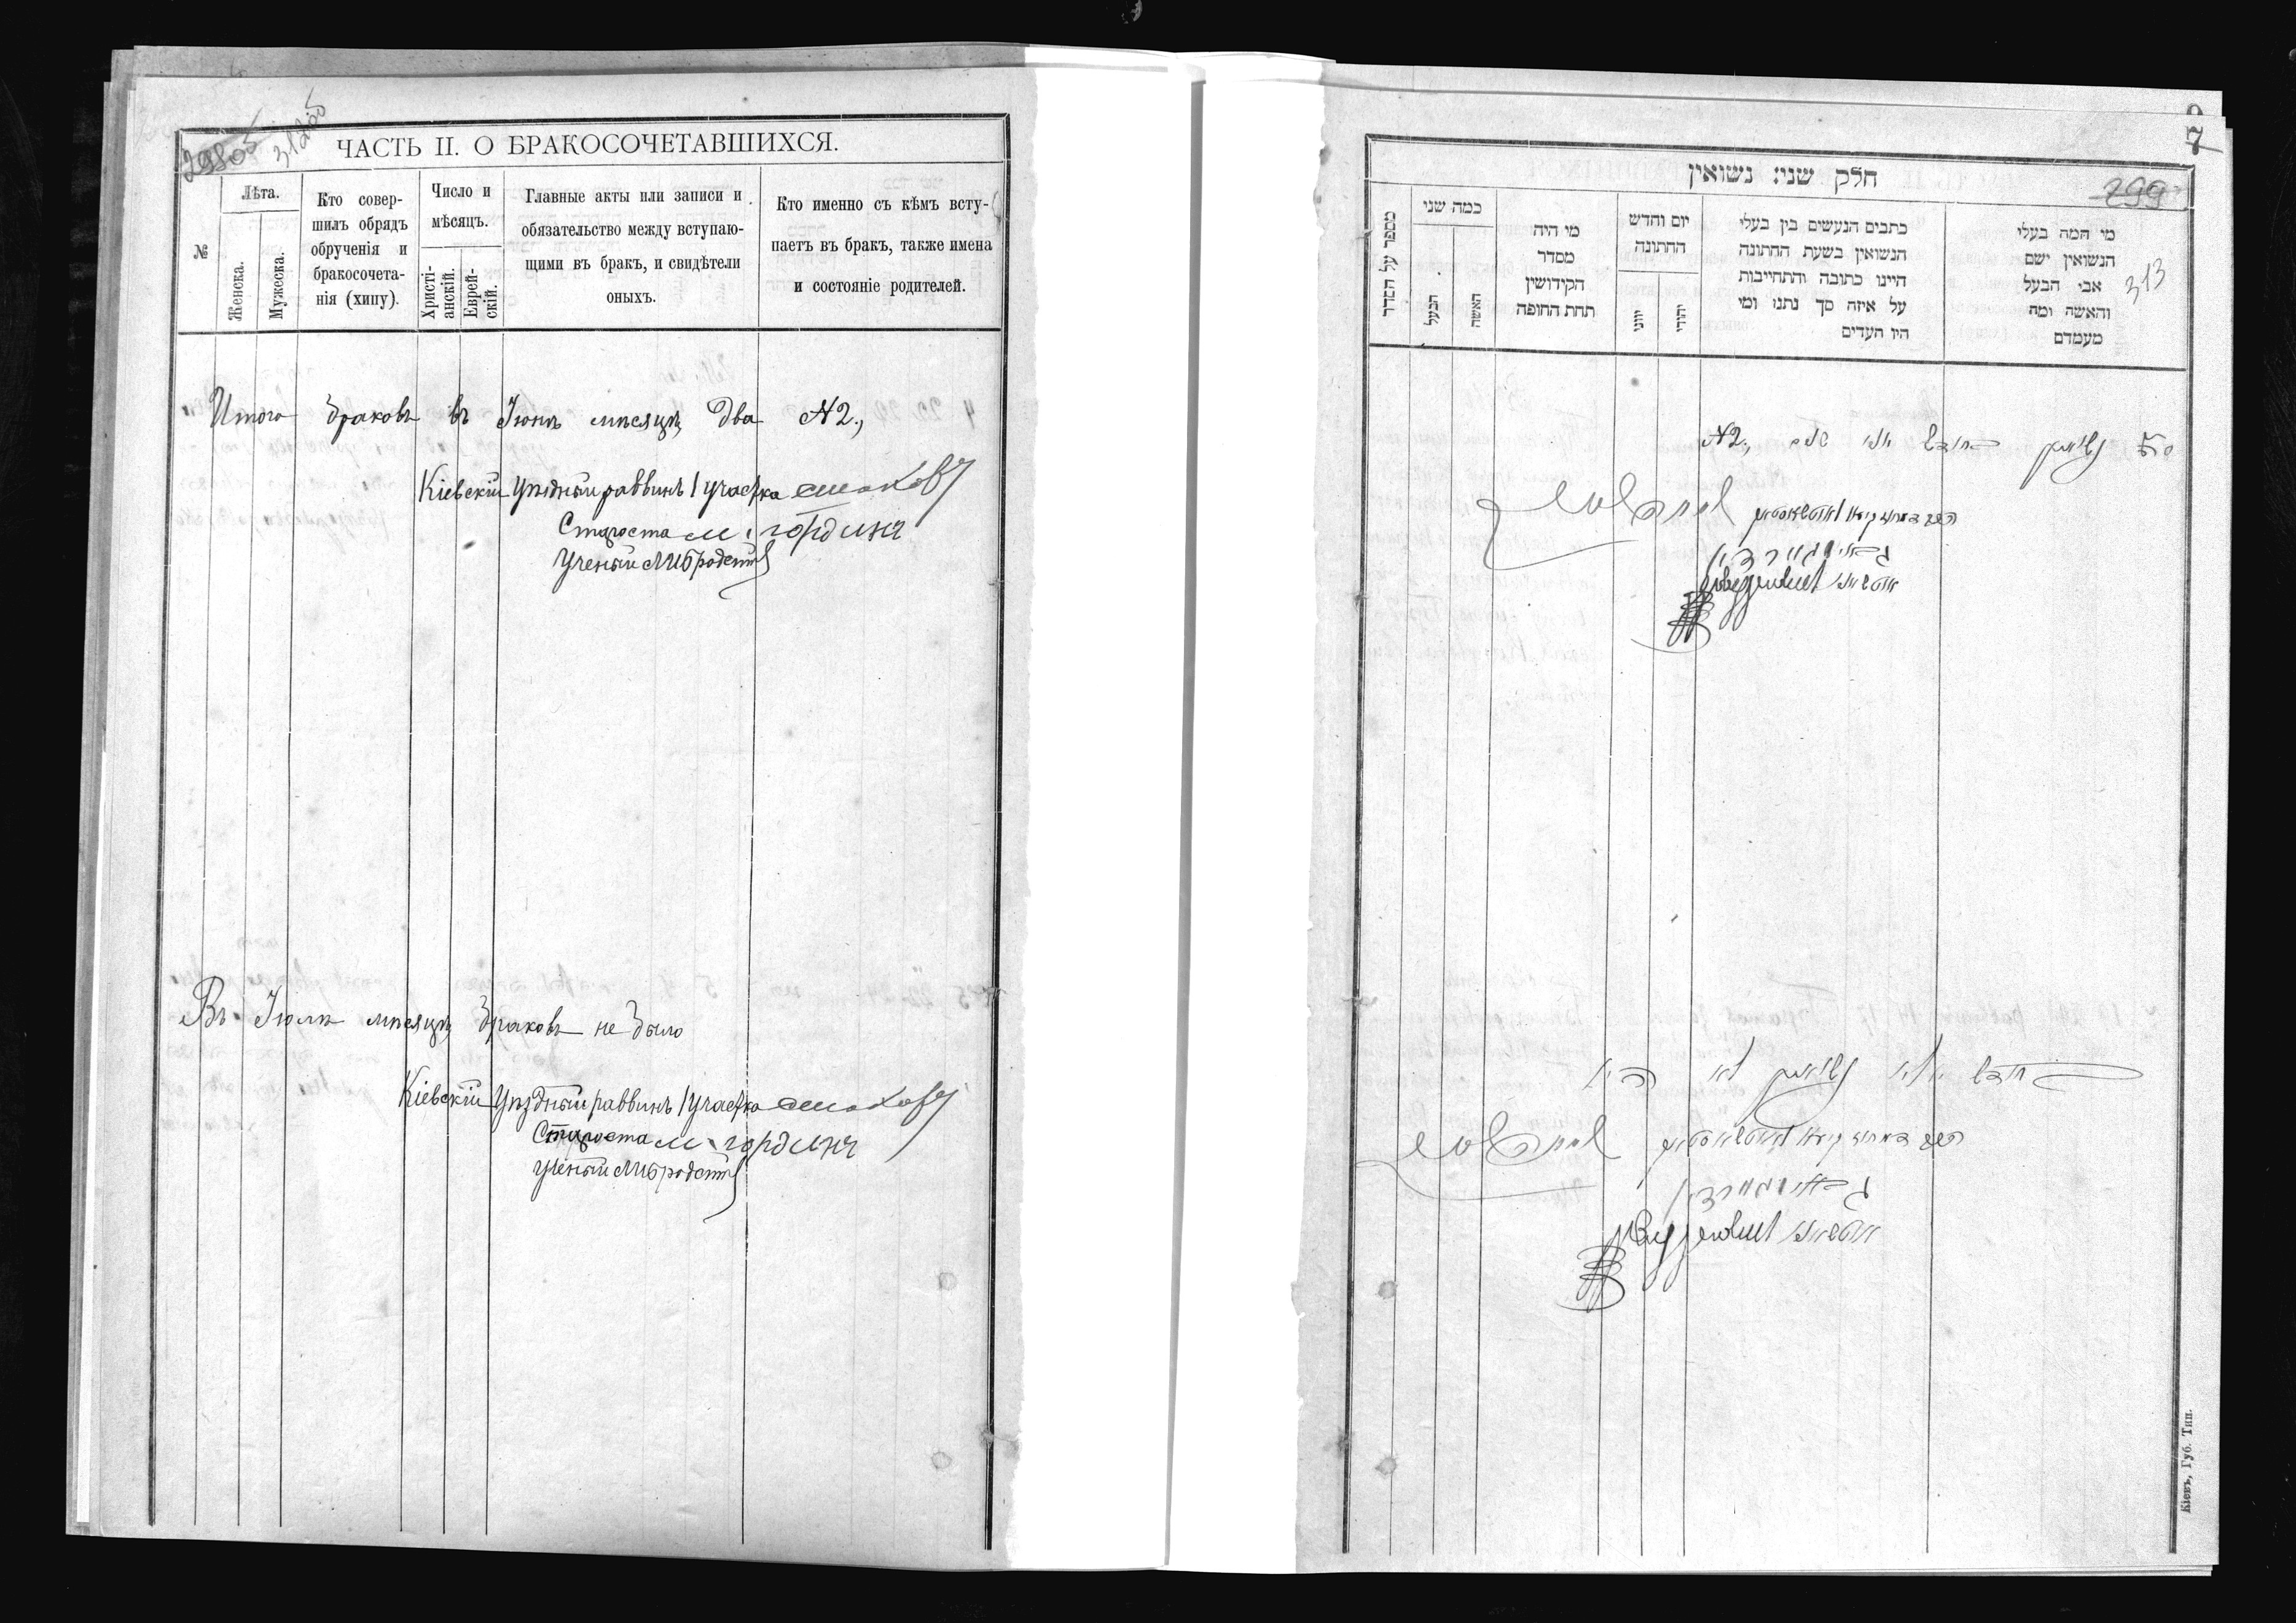 298об
312об
ЧАСТЬ II. О БРАКОСОЧЕТАВШИХСЯ.
№
Лѣта.
Женска.
Мужеска.
Кто совер-
шилъ обрядъ
обрученія и
бракосочета-
нія (хипу).
Число и
мѣсяцъ.
Христі-
анскій.
Еврей-
скій.
Главные акты или записи и
обязательство между вступаю-
щими въ бракъ, и свидѣтели
оныхъ.
Кто именно съ кѣмъ всту-
паетъ въ бракъ, также имена
и состояніе родителей.
Итого браковъ въ Іюнѣ мѣсяцѣ два №2.,
Кіевскій Уѣздный раввинъ 1 участка
Староста М. Гординъ
Ученый
Въ Іюлѣ мѣсяцѣ браковъ не было
Кіевскій Уѣздный раввинъ 1 участка
Староста М. Гординъ
Ученый
7
299
313
חלק שני: נשואין
מספר על הסדר
כמה שני
הבעל
האשה
מי היה
מסדר
הקידושין
תחת החופה
יום וחדש
החתונה
יווני
יהודי
כתבים הנעשים בין בעלי
הנשואין בשעת החתונה
היינו כתובה והתחייבות
על איזה סך נתנו ומי
היו העדים
מי המה בעלי
הנשואין ישם
אבי הבעל
והאשה ומה
מעמדם
ס"ה נשואין בחודש יוני שנים №2.,
בחודש יולי נשואין לא היו
Кіевъ, Губ. Тип.